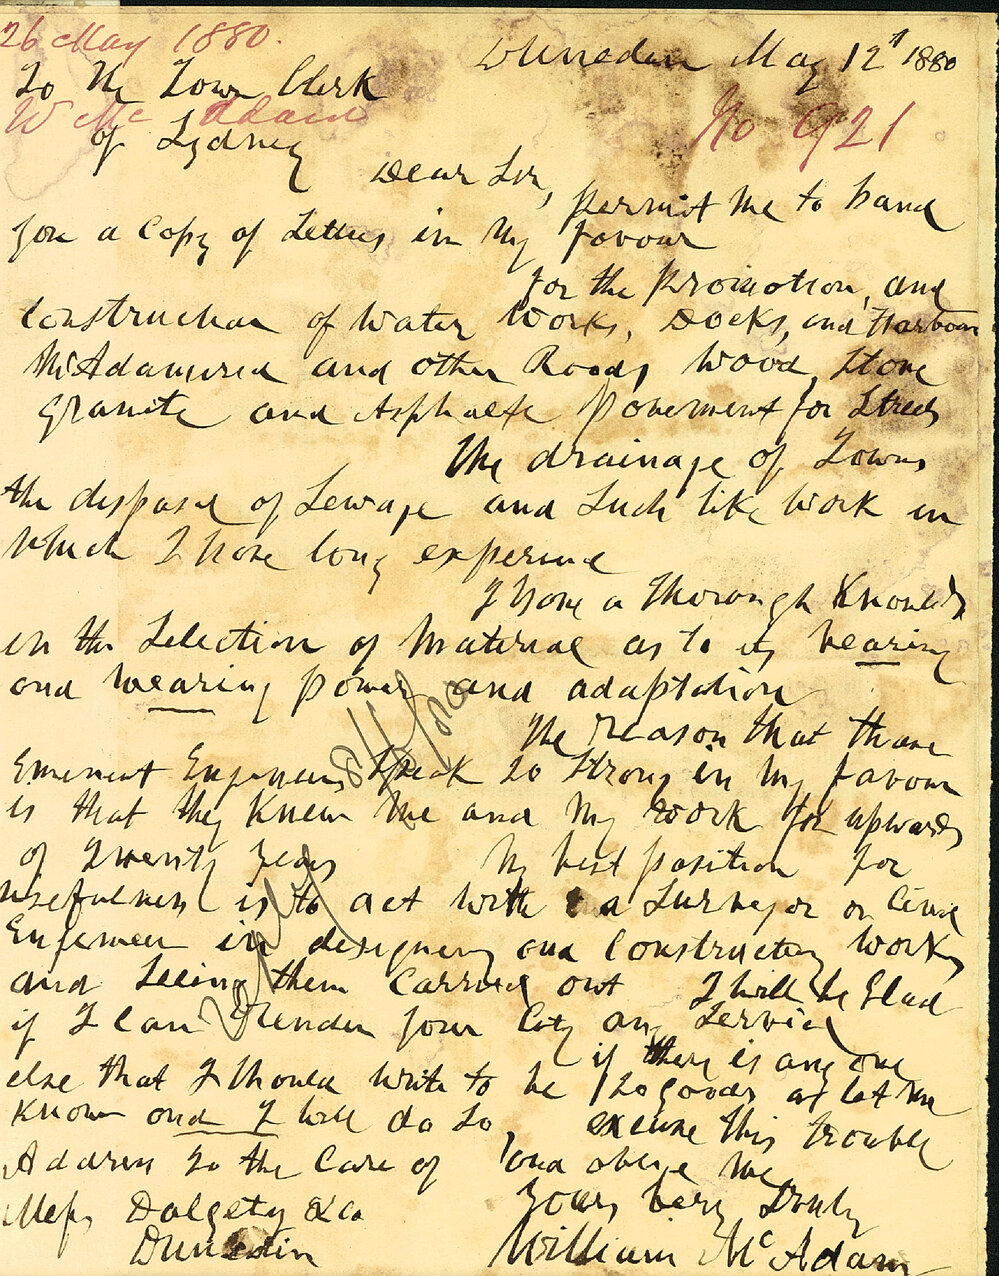 26 May 1880.
Dunedin May 12th 1880
To the Town Clerk
W McAdam
No 921
of Sydney
Dear Sir,
permit me to hand
you a Copy of Letters in my favour
for the promotion, and
Construction of Water Works, Docks, and Harbour
McAdamized and other Roads, Wood, Stone
Granite and Asphalte Pavement for Streets
The drainage of Towns
the disposal of Sewage and Such like work in
which I have long experience
I have a thorough Knowledge
in the Selection of Material as to its bearing
and wearing power and adaptation
The reason that these
Eminent Engineers Speak so Strong in my favour
is that they Knew me and my work for upwards
of Twenty Years My best position for
usefulness is to act with a Surveyor or Civil
Engineer in designing and Constructing works
and Seeing them Carried out I will be Glad
if I Can Render your City any Service
if there is any one
else that I Should write to be so good as let me
Know and I will do so, excuse this trouble
Address to the Care of and oblige me
Messrs Dalgety & Co Yours very Truly
Dunedin William McAdam